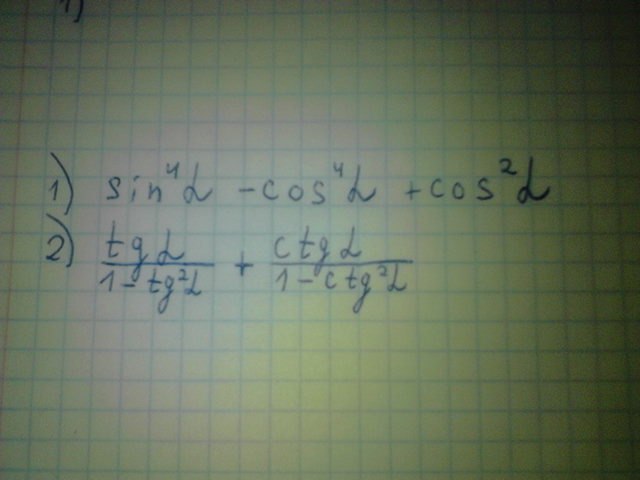 1) sin⁴α - cos⁴α + cos²α
2) tgα/(1 - tg²α) + ctgα/(1 - ctg²α)